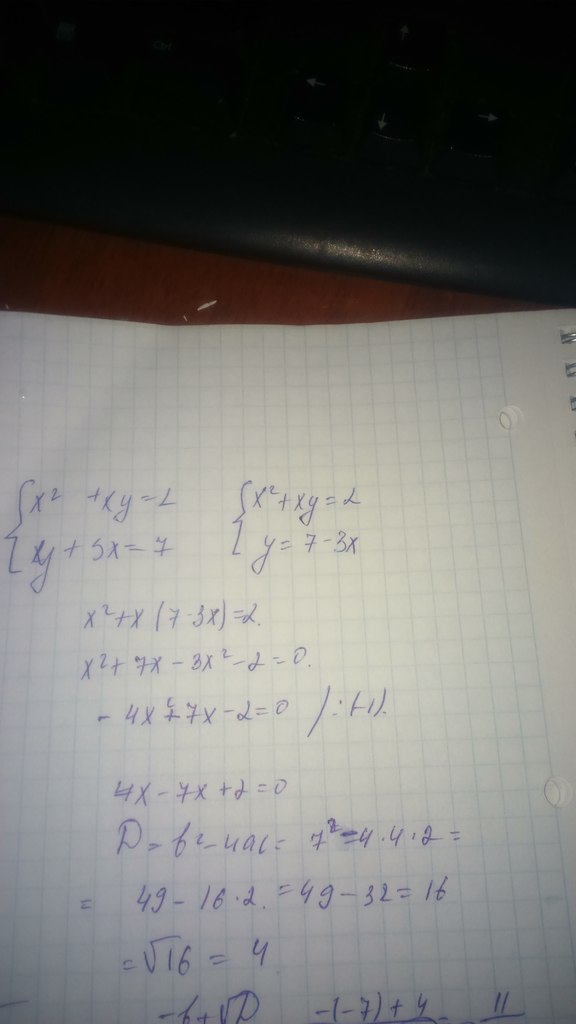 {x² + xy = 2 {x² + xy = 2
{xy + 3x = 7 { y = 7 - 3x
x² + x (7 - 3x) = 2.
x² + 7x - 3x² - 2 = 0.
- 4x² + 7x - 2 = 0 /:(-1).
4x - 7x + 2 = 0
D = b² - 4ac = 7² - 4·4·2 =
= 49 - 16·2. = 49 - 32 = 16
= √16 = 4
-b + √D -(-7) + 4 = 11